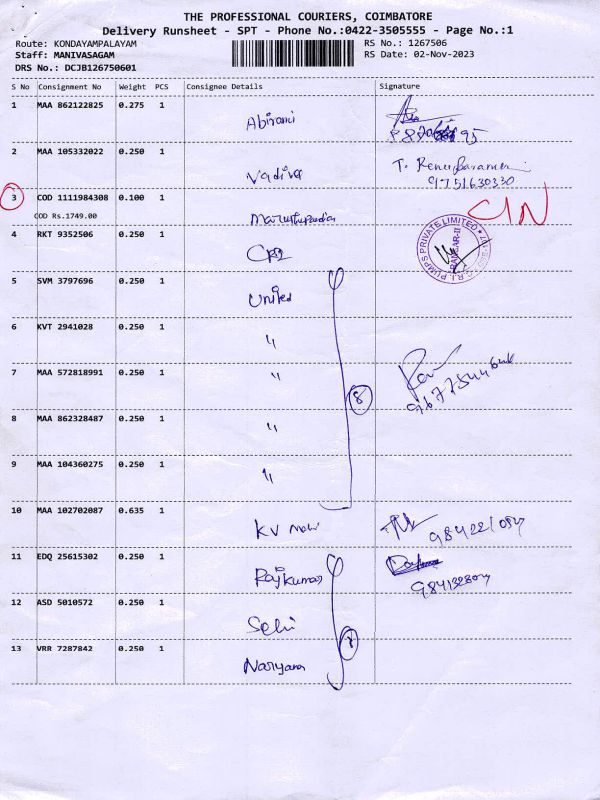 THE PROFESSIONAL COURIERS, COIMBATORE
Delivery Runsheet - SPT - Phone No.:0422-3505555 - Page No.:1
Route: KONDAYAMPALAYAM
RS No.: 1267506
Staff: MANIVASAGAM
RS Date: 02-Nov-2023
DRS No.: DCJB126750601
S No Consignment No Weight PCS Consignee Details Signature
1 MAA 862122825 0.275 1 Abirami
2 MAA 105332022 0.250 1 Vadivel
9751630330
3 COD 1111984308 0.100 1
COD Rs.1749.00
4 RKT 9352506 0.250 1 CRI
C.R.I. PUMPS PRIVATE LIMITED
5 SVM 3797696 0.250 1 United
6 KVT 2941028 0.250 1 "
7 MAA 572818991 0.250 1 "
8
8 MAA 862328487 0.250 1 "
9 MAA 104360275 0.250 1 "
10 MAA 102702087 0.635 1 KV
11 EDQ 25615302 0.250 1 Rajkumar
12 ASD 5010572 0.250 1 Selvi
13 VRR 7287842 0.250 1 Naryana